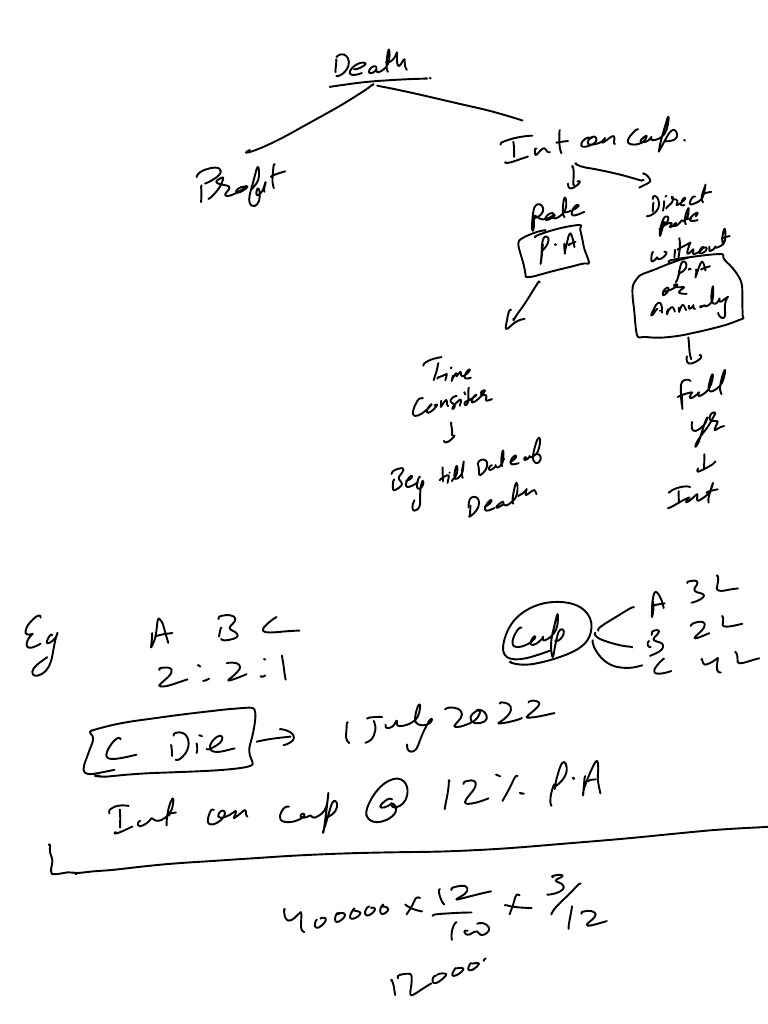 Death
Profit
Int on cap.
Rate
P.A
Direct
Rate
without
P.A
or
Annualy
Time
Consider
Beg till Date of
Death
Full
yr
Int
Eg
A B C
2:2:1
Cap
A 3L
B 2L
C 4L
C Die → 1 July 2022
Int on cap @ 12% P.A
400000 × 12/100 × 3/12
12000